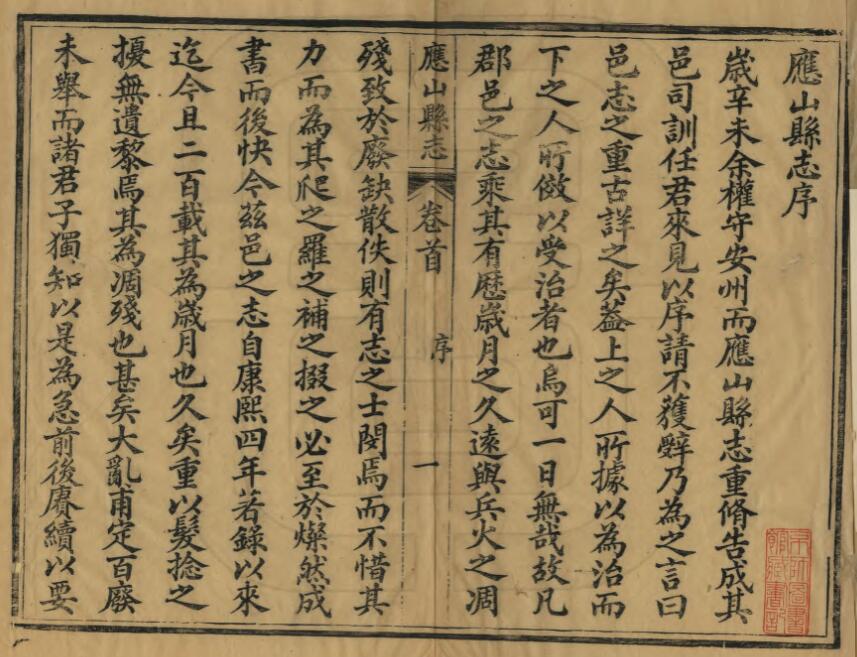 應山縣志序
歲辛未余權守安州而應山縣志重脩告成其
邑司訓任君來見以序請不獲辭乃為之言曰
邑志之重古詳之矣蓋上之人所據以為治而
下之人所儆以受治者也烏可一日無哉故凡
郡邑之志乘其有歷歲月之久遠與兵火之凋
應山縣志
卷首
序
一
殘致於廢缺散佚則有志之士閔焉而不惜其
力而為其爬之羅之補之掇之必至於燦然成
書而後快今茲邑之志自康熙四年著錄以來
迄今且二百載其為歲月也久矣重以髮捻之
擾無遺黎焉其為凋殘也甚矣大亂甫定百廢
未舉而諸君子獨知以是為急前後賡續以要